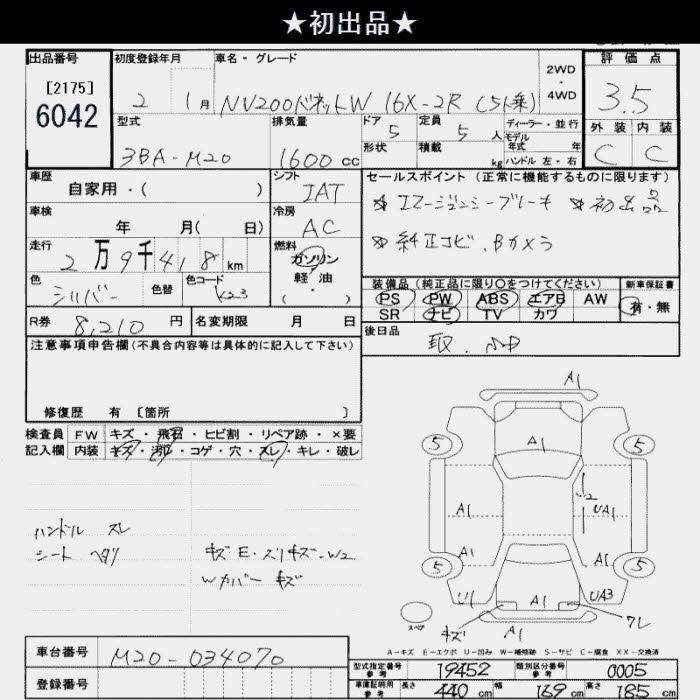 ★初出品★
出品番号 初度登録年月 車名・グレード 2WD・4WD 評価点
[2175]
6042
2 1月 NV200バネットW 16X-2R (5人乗) 3.5
型式 排気量 ドア 5 定員 5人 ディーラー・並行 外装 内装
3BA-M20 1600cc 形状 積載 kg モデル年式 年 ハンドル 左・右 C C
車歴 シフト セールスポイント (正常に機能するものに限ります)
自家用・( ) IAT ☆ エマージェンシーブレーキ ☆ 初出品
車検 冷房
年 月( 日) AC ☆ 純正ナビ、Bカメラ
走行 燃料
2万9千418km ガソリン
軽・油
( )
色 色替 色コード 装備品 (純正品に限り○をつけてください) 新車保証書
シルバー K23 PS PW ABS エアB AW 有・無
R券 8,210円 名変期限 月 日 SR ナビ TV カワ
注意事項申告欄(不具合内容等は具体的に記入して下さい) 後日品
取.
修復歴 有 [箇所 ]
検査員 FW キズ・飛石・ヒビ割・リペア跡・×要
記入欄 内装 キズ・汚れ・コゲ・穴・スレ・キレ・破レ
ハンドル スレ
シート ヘタリ
キズE・スリキズ・W2
Wカバー キズ
A1
A1
5 5
A1 W2 UA1
A1 A1
5 5
U1 A1 UA3
スペア キズ A1 ワレ
A-キズ E-エクボ U-凹み W-補修跡 S-サビ C-腐食 XX-交換済
車台番号 M20-034070
登録番号
型式指定番号 参考 19452 類別区分番号 参考 0005
車庫証明用 参考 長さ 440cm 幅 169cm 高さ 185cm